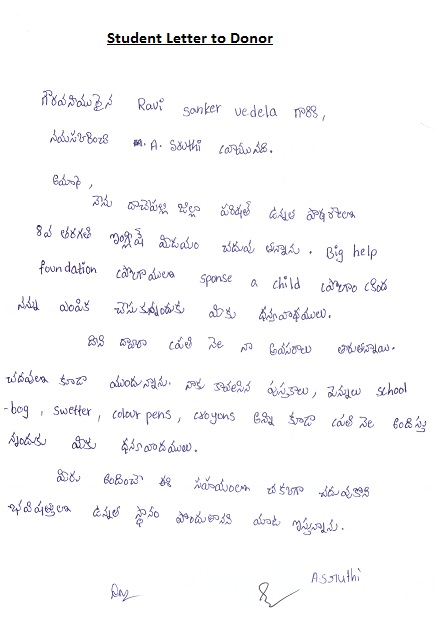 Student Letter to Donor
గౌరవనీయులైన Ravi sanker vedela గారికి,
నమస్కరించి A. Sruthi వ్రాయునది.
అయ్యా,
నేను దాచేపల్లి జిల్లా పరిషత్ ఉన్నత పాఠశాలలో
8వ తరగతి ఇంగ్లీష్ మీడియం చదువు తున్నాను. Big help
foundation ప్రోగ్రాములో sponse a child ప్రోగ్రాం క్రింద
నన్ను ఎంపిక చేసుకున్నందుకు మీకు ధన్యవాదములు.
దీని ద్వారా ప్రతి నెల నా అవసరాలు తీరుతున్నాయి.
చదువులో కూడా ముందున్నాను. నాకు కావలసిన పుస్తకాలు, పెన్నులు school
-bag, swetter, colour pens, crayons అన్ని కూడా ప్రతి నెల అందిస్తు
న్నందుకు మీకు ధన్యవాదములు.
మీరు అందించే ఈ సహాయంతో చక్కగా చదువుకొని
భవిష్యత్తులో ఉన్నత స్థానం పొందుతానని మాట ఇస్తున్నాను.
A sruthi